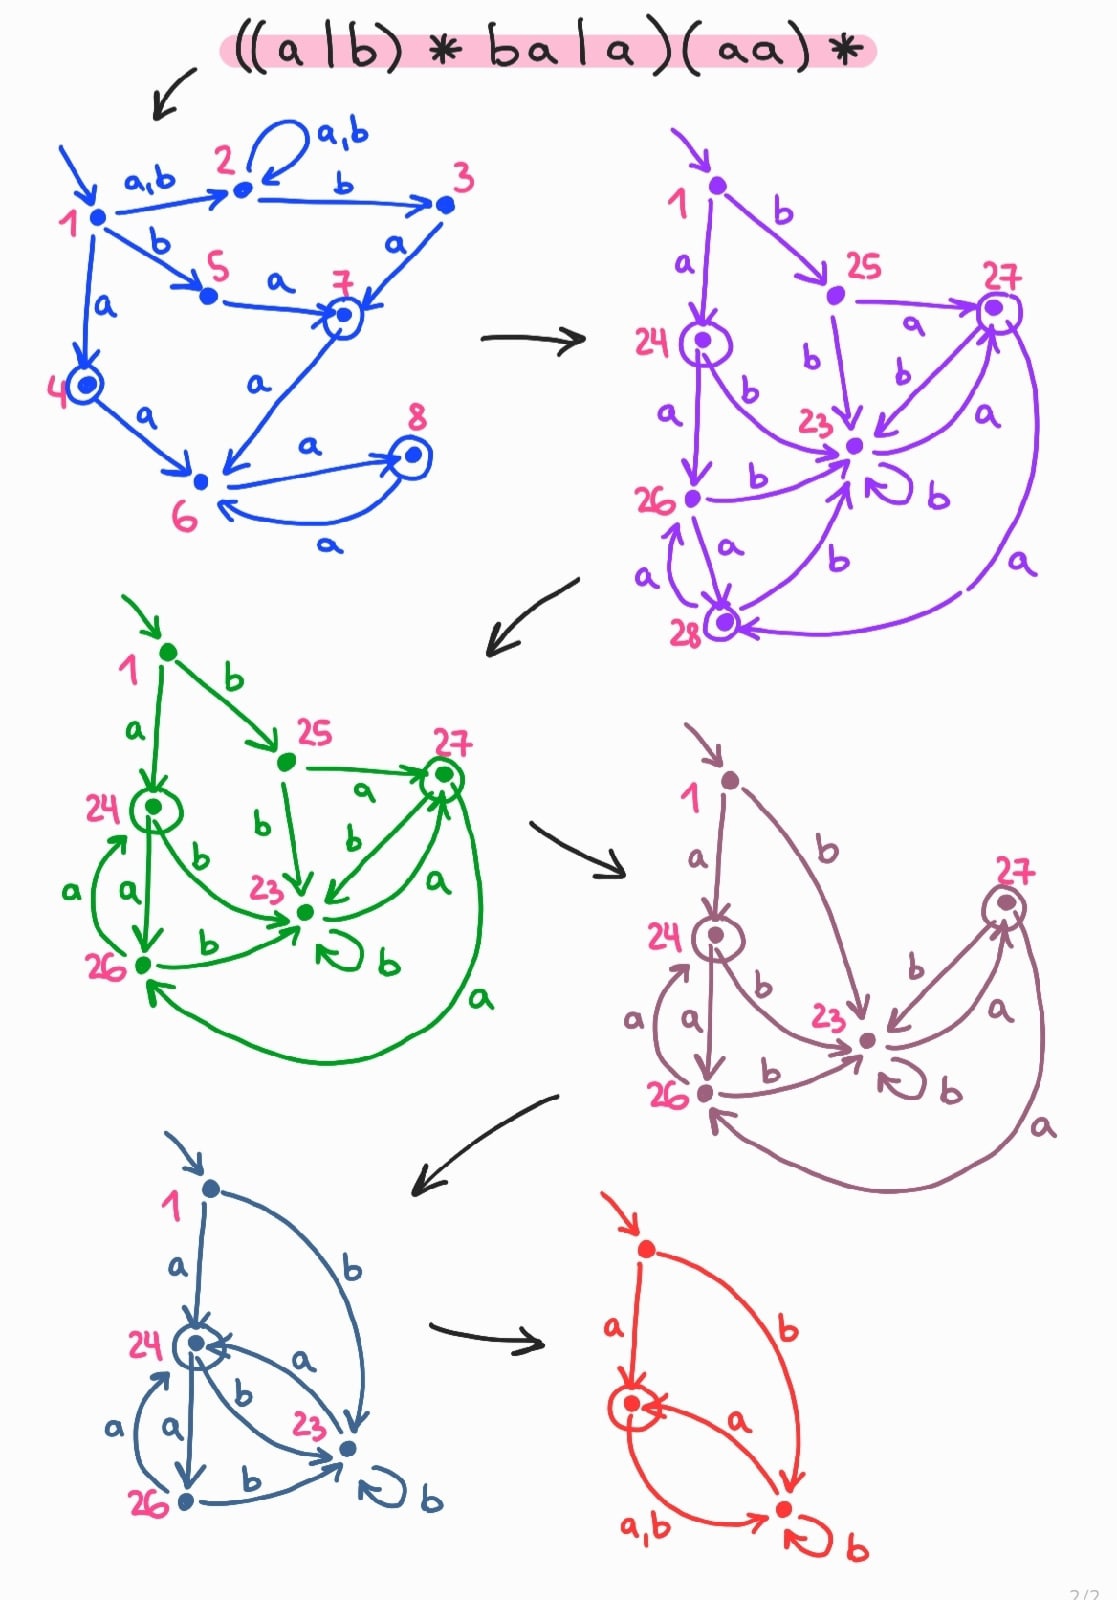 ((a|b)*ba|a)(aa)*
a,b
2
a,b
b
3
1
b
5
a
7
a
a
4
a
a
a
8
6
a
1
b
a
25
27
24
a
b
b
b
a
23
a
26
b
b
a
a
b
a
28
1
b
a
25
27
24
a
b
b
b
a
a
23
a
26
b
b
a
1
b
a
27
24
b
b
a
a
23
a
26
b
b
a
1
a
b
24
a
b
a
a
23
26
b
b
a
b
a
a,b
b
2/2